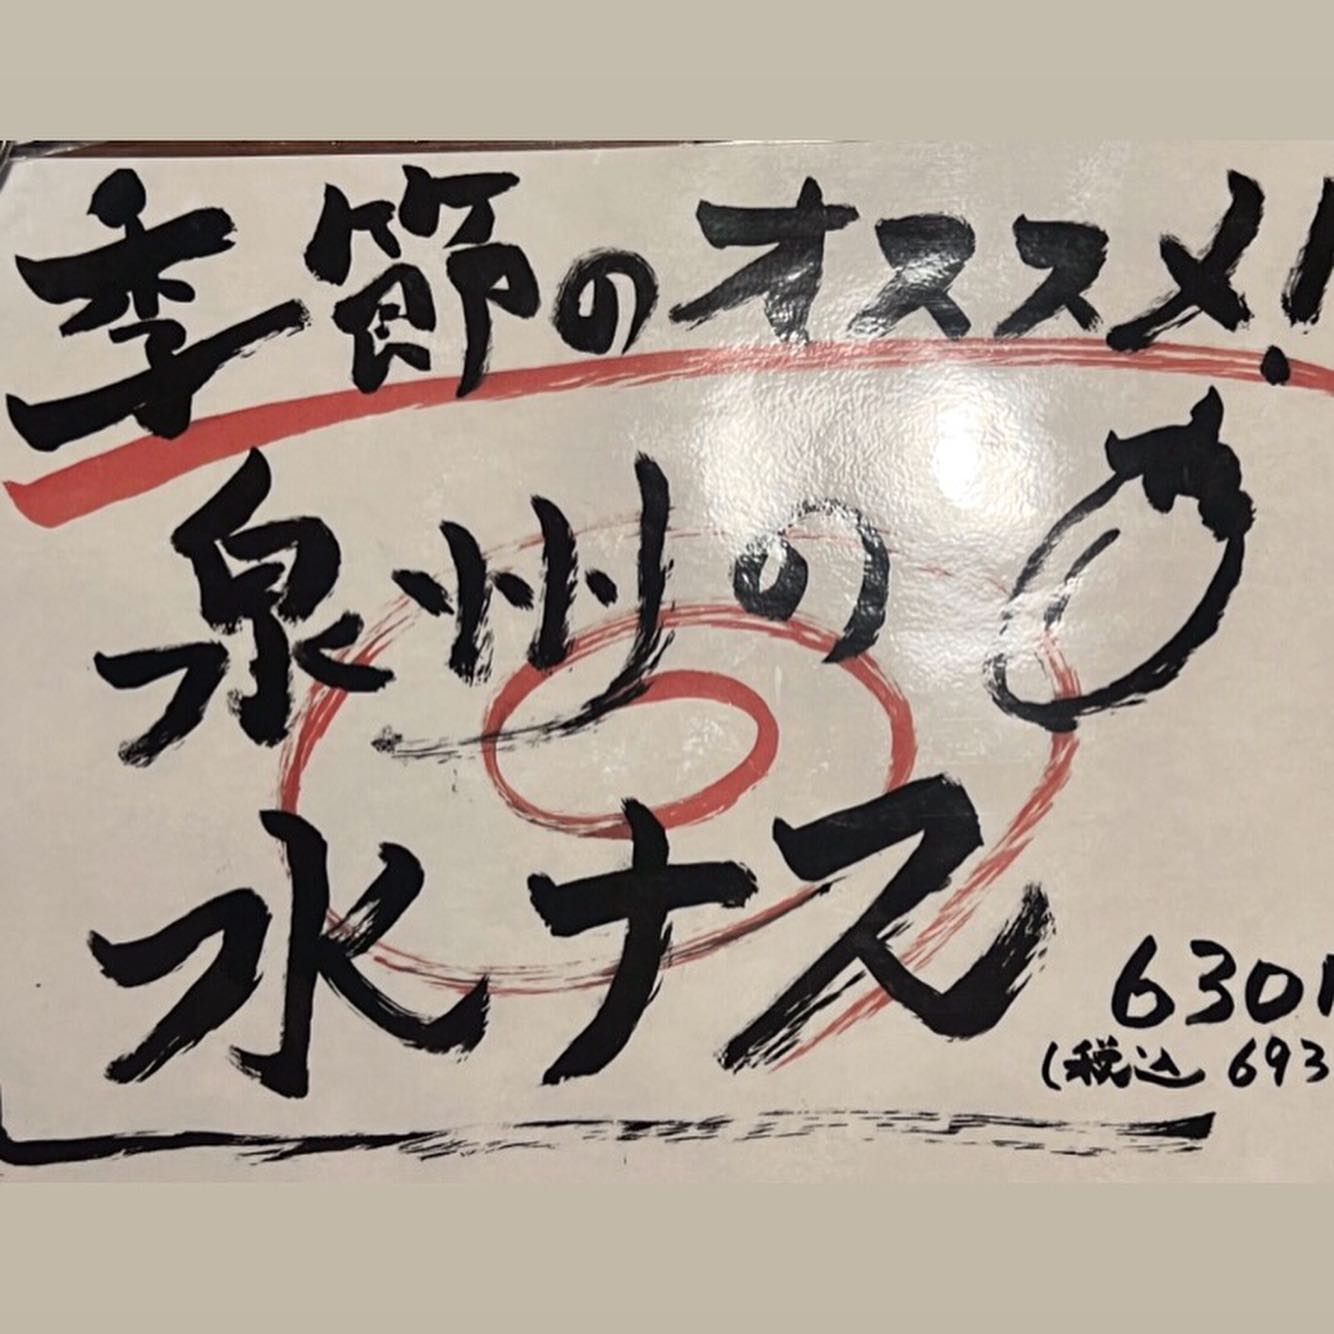 季節のオススメ!
泉州の
水ナス
630円
(税込 693